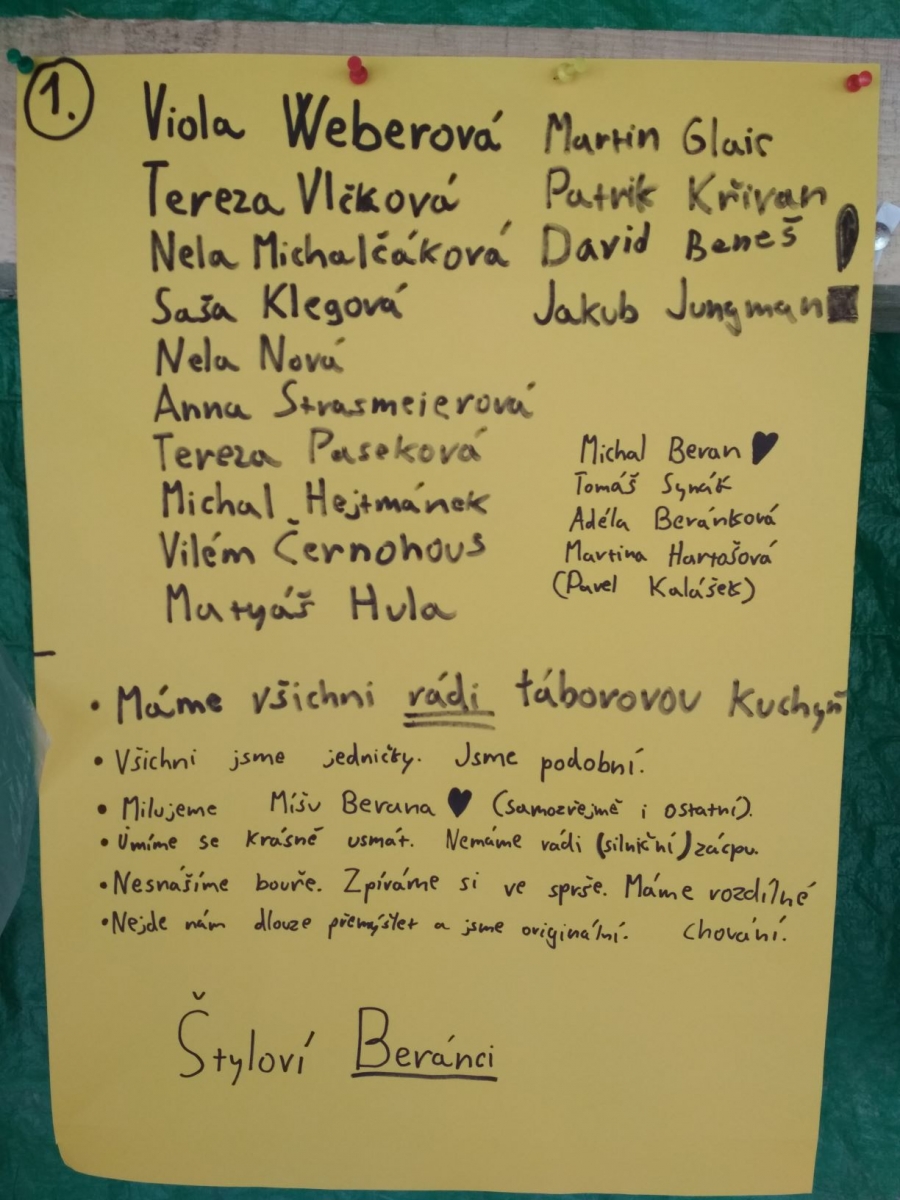 1.
Viola Weberová
Tereza Vlčková
Nela Michalčáková
Saša Klegová
Nela Nová
Anna Strasmeierová
Tereza Paseková
Michal Hejtmánek
Vilém Černohous
Matyáš Hula
Martin Glaic
Patrik Křivan
David Beneš
Jakub Jungman
Michal Beran ♥
Tomáš Synák
Adéla Beránková
Martina Hartošová
(Pavel Kalášek)
• Máme všichni rádi táborovou kuchyň
• Všichni jsme jedničky. Jsme podobní.
• Milujeme Míšu Berana ♥ (samozřejmě i ostatní).
• Umíme se krásně usmát. Nemáme rádi (silniční) zácpu.
• Nesnášíme bouře. Zpíváme si ve sprše. Máme rozdílné
chování.
• Nejde nám dlouze přemýšlet a jsme originální.
Štyloví Beránci